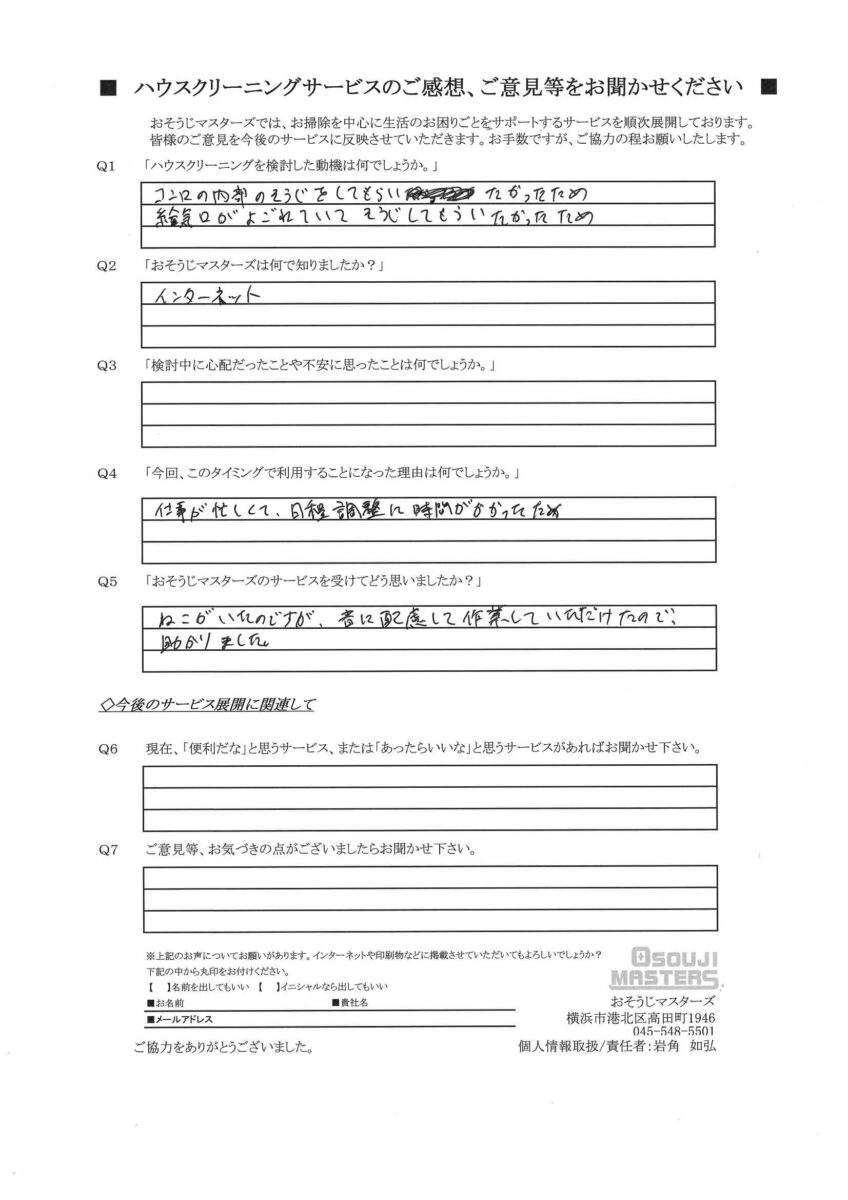 ■ ハウスクリーニングサービスのご感想、ご意見等をお聞かせください ■
おそうじマスターズでは、お掃除を中心に生活のお困りごとをサポートするサービスを順次展開しております。
皆様のご意見を今後のサービスに反映させていただきます。お手数ですが、ご協力の程お願いしたします。
Q1 「ハウスクリーニングを検討した動機は何でしょうか。」
コンロの内部のそうじをしてもらい たかったため
給気口がよごれていて そうじしてもらいたかったため
Q2 「おそうじマスターズは何で知りましたか？」
インターネット
Q3 「検討中に心配だったことや不安に思ったことは何でしょうか。」
Q4 「今回、このタイミングで利用することになった理由は何でしょうか。」
仕事が忙しくて、日程調整に時間がかかったため
Q5 「おそうじマスターズのサービスを受けてどう思いましたか？」
ねこがいたのですが、音に配慮して作業していただけたので、
助かりました。
◇今後のサービス展開に関連して
Q6 現在、「便利だな」と思うサービス、または「あったらいいな」と思うサービスがあればお聞かせ下さい。
Q7 ご意見等、お気づきの点がございましたらお聞かせ下さい。
※上記のお声についてお願いがあります。インターネットや印刷物などに掲載させていただいてもよろしいでしょうか？
下記の中から丸印をお付けください。
【 】名前を出してもいい 【 】イニシャルなら出してもいい
■お名前 ■貴社名
■メールアドレス
ご協力をありがとうございました。
OSOUJI
MASTERS
おそうじマスターズ
横浜市港北区高田町1946
045-548-5501
個人情報取扱/責任者：岩角 如弘